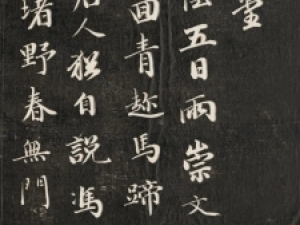 堂
五日雨崇文
面青趂馬蹄
人猶自説馮
堵野春無門